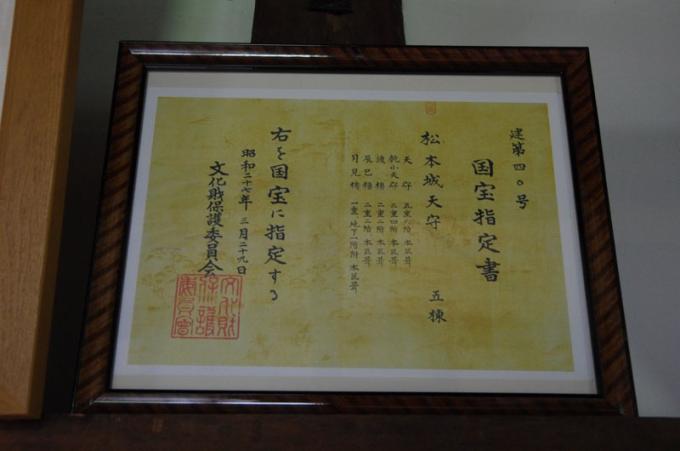 建第四〇号
国宝指定書
松本城天守 五棟
天守 五重六階 本瓦葺
乾小天守 三重四階 本瓦葺
渡櫓 二重二階 本瓦葺
辰巳櫓 二重二階 本瓦葺
月見櫓 一重 地下一階附 本瓦葺
右を国宝に指定する
昭和二十七年三月二十九日
文化財保護委員会
文化財保護委員會